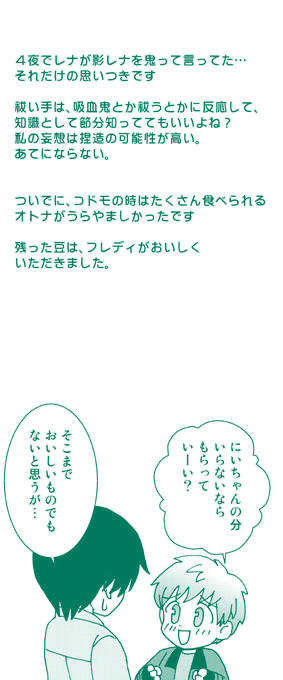 ４夜でレナが影レナを鬼って言ってた…
それだけの思いつきです
祓い手は、吸血鬼とか祓うとかに反応して、
知識として節分知っててもいいよね？
私の妄想は捏造の可能性が高い。
あてにならない。
ついでに、コドモの時はたくさん食べられる
オトナがうらやましかったです
残った豆は、フレディがおいしく
いただきました。
にいちゃんの分
いらないなら
もらって
いーい？
そこまで
おいしいものでも
ないと思うが…